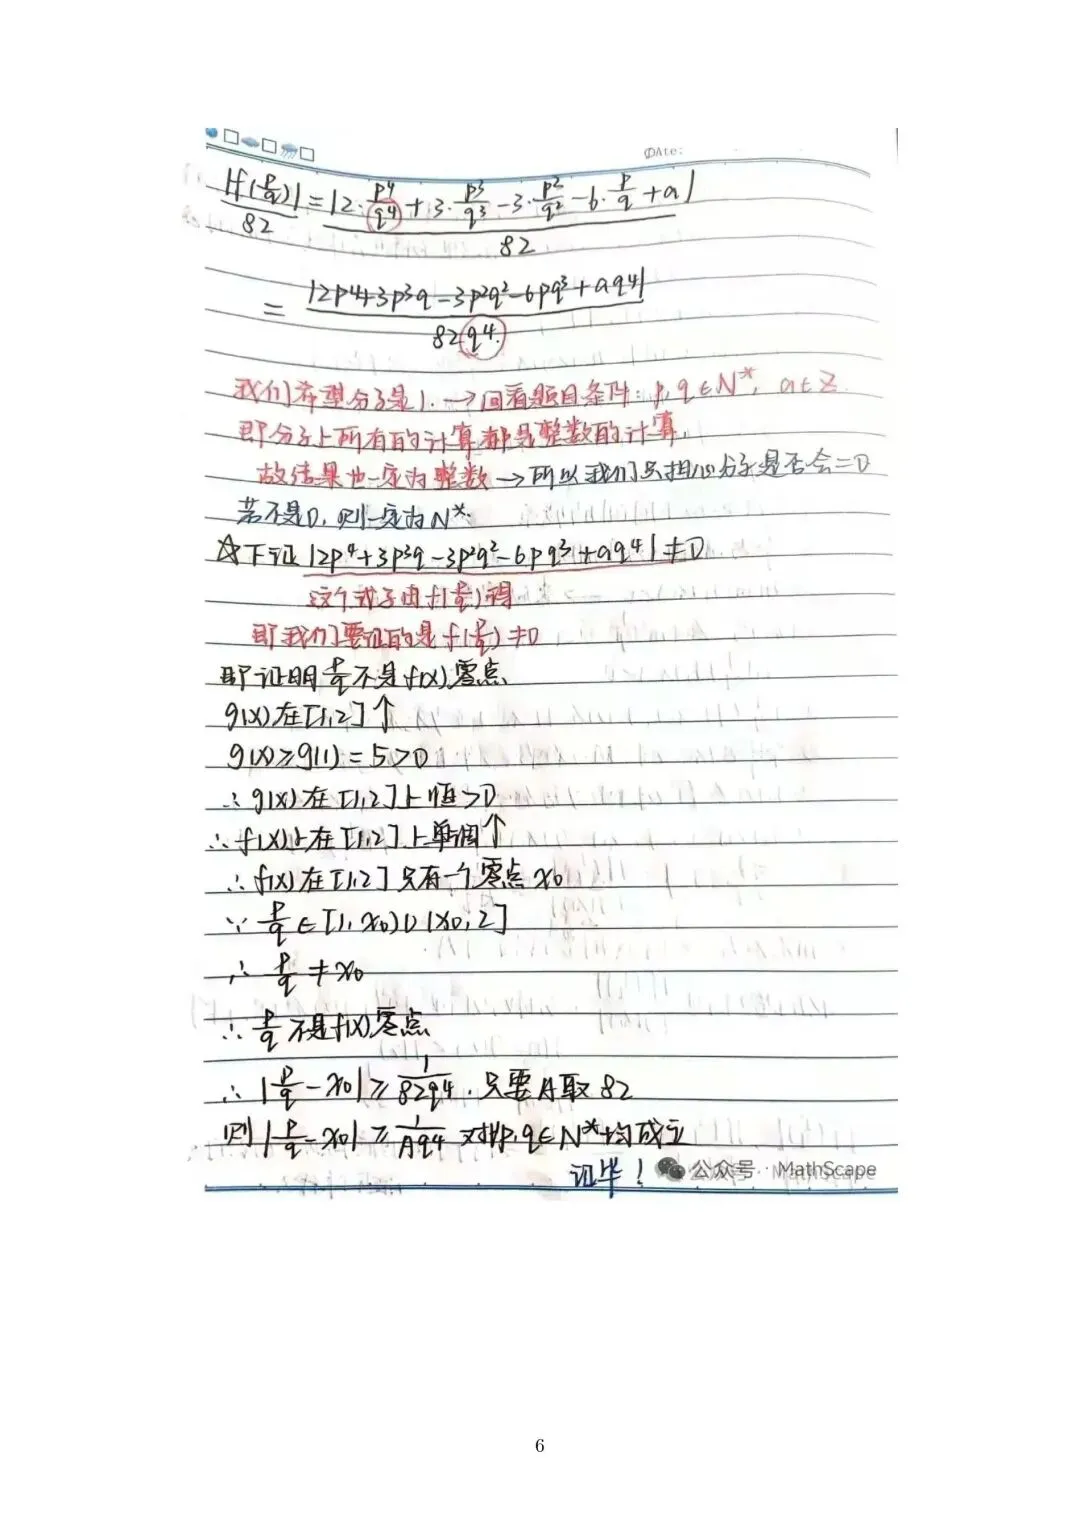 DAte:
|f(p/q)|/82 = |2·p⁴/q⁴ + 3·p³/q³ - 3·p²/q² - 6·p/q + a|/82
= |2p⁴+3p³q-3p²q²-6pq³+aq⁴|/82q⁴.
我们希望分子是1. → 回看题目条件: p,q∈N*, a∈Z.
即分子上所有的计算都是整数的计算
故结果也一定为整数 → 所以我们只担心分子是否会=0
若不是0, 则一定为N*.
☆下证 |2p⁴+3p³q-3p²q²-6pq³+aq⁴|≠0
这个式子由f(p/q)得
即我们要证的是f(p/q)≠0
即证明p/q不是f(x)零点
g(x)在[1,2]↑
g(x)≥g(1)=5>0
∴g(x)在[1,2]上恒>0
∴f(x)在[1,2]上单调↑
∴f(x)在[1,2]只有一个零点x₀
∵p/q∈[1,x₀)∪(x₀,2]
∴p/q≠x₀
∴p/q不是f(x)零点
∴|p/q-x₀|≥1/82q⁴. 只要A取82
则|p/q-x₀|≥1/Aq⁴对p,q∈N*均成立
证毕!
公众号·MathScape
6